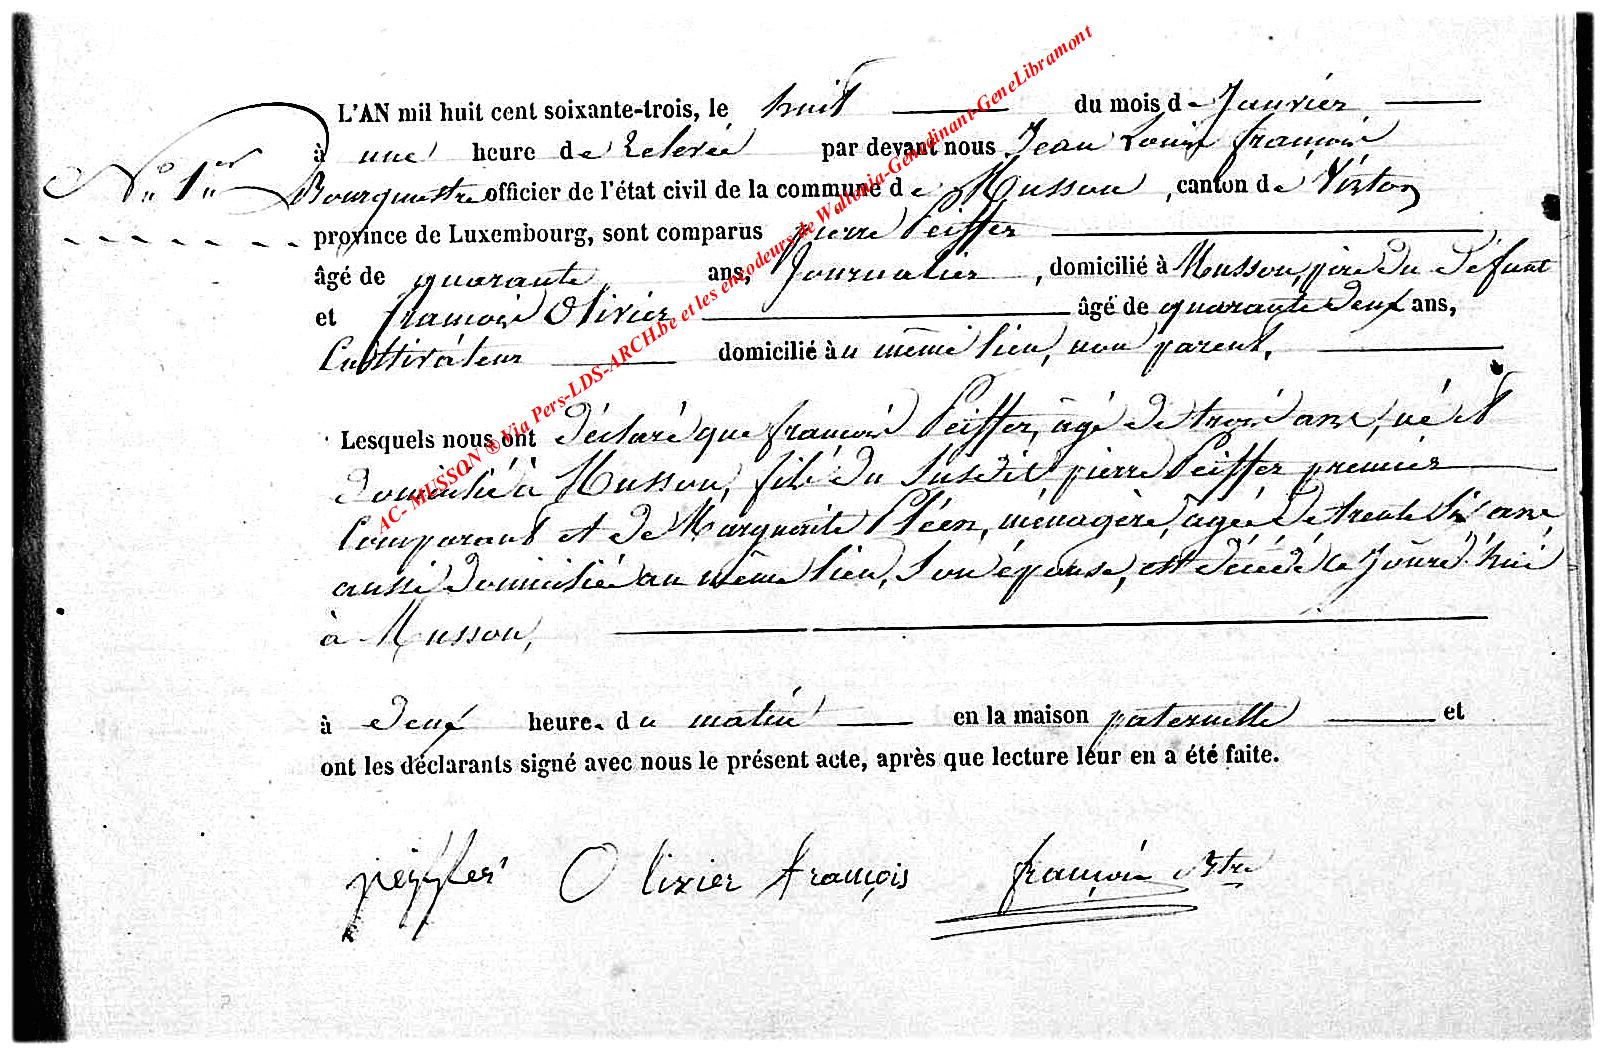 L'AN mil huit cent soixante-trois, le huit du mois de Janvier
N° 1er
à une heure de relevée par devant nous Jean Louis françois
Bourguemestre officier de l'état civil de la commune de Musson, canton de Virton
province de Luxembourg, sont comparus pierre Peiffer
âgé de quarante ans, Journalier, domicilié à Musson, père du défunt
et françois Olivier âgé de quarante deux ans,
Cultivateur domicilié au même lieu, non parent.
Lesquels nous ont déclaré que françois Peiffer, âgé de trois ans, né et
domicilié à Musson, fils du susdit pierre Peiffer premier
Comparant et de Marguerite Pléen, ménagère, agée de trente six ans,
aussi domiciliée au même lieu, son épouse, est décédé ce jourd'hui
à Musson,
à deux heure. du matin en la maison paternelle et
ont les déclarants signé avec nous le présent acte, après que lecture leur en a été faite.
peiffer Olivier françois françois Bstre
AC- MUSSON ® Via Pers-LDS-ARCH.be et les encodeurs de Wallonia-Genedinant-GeneLibramont